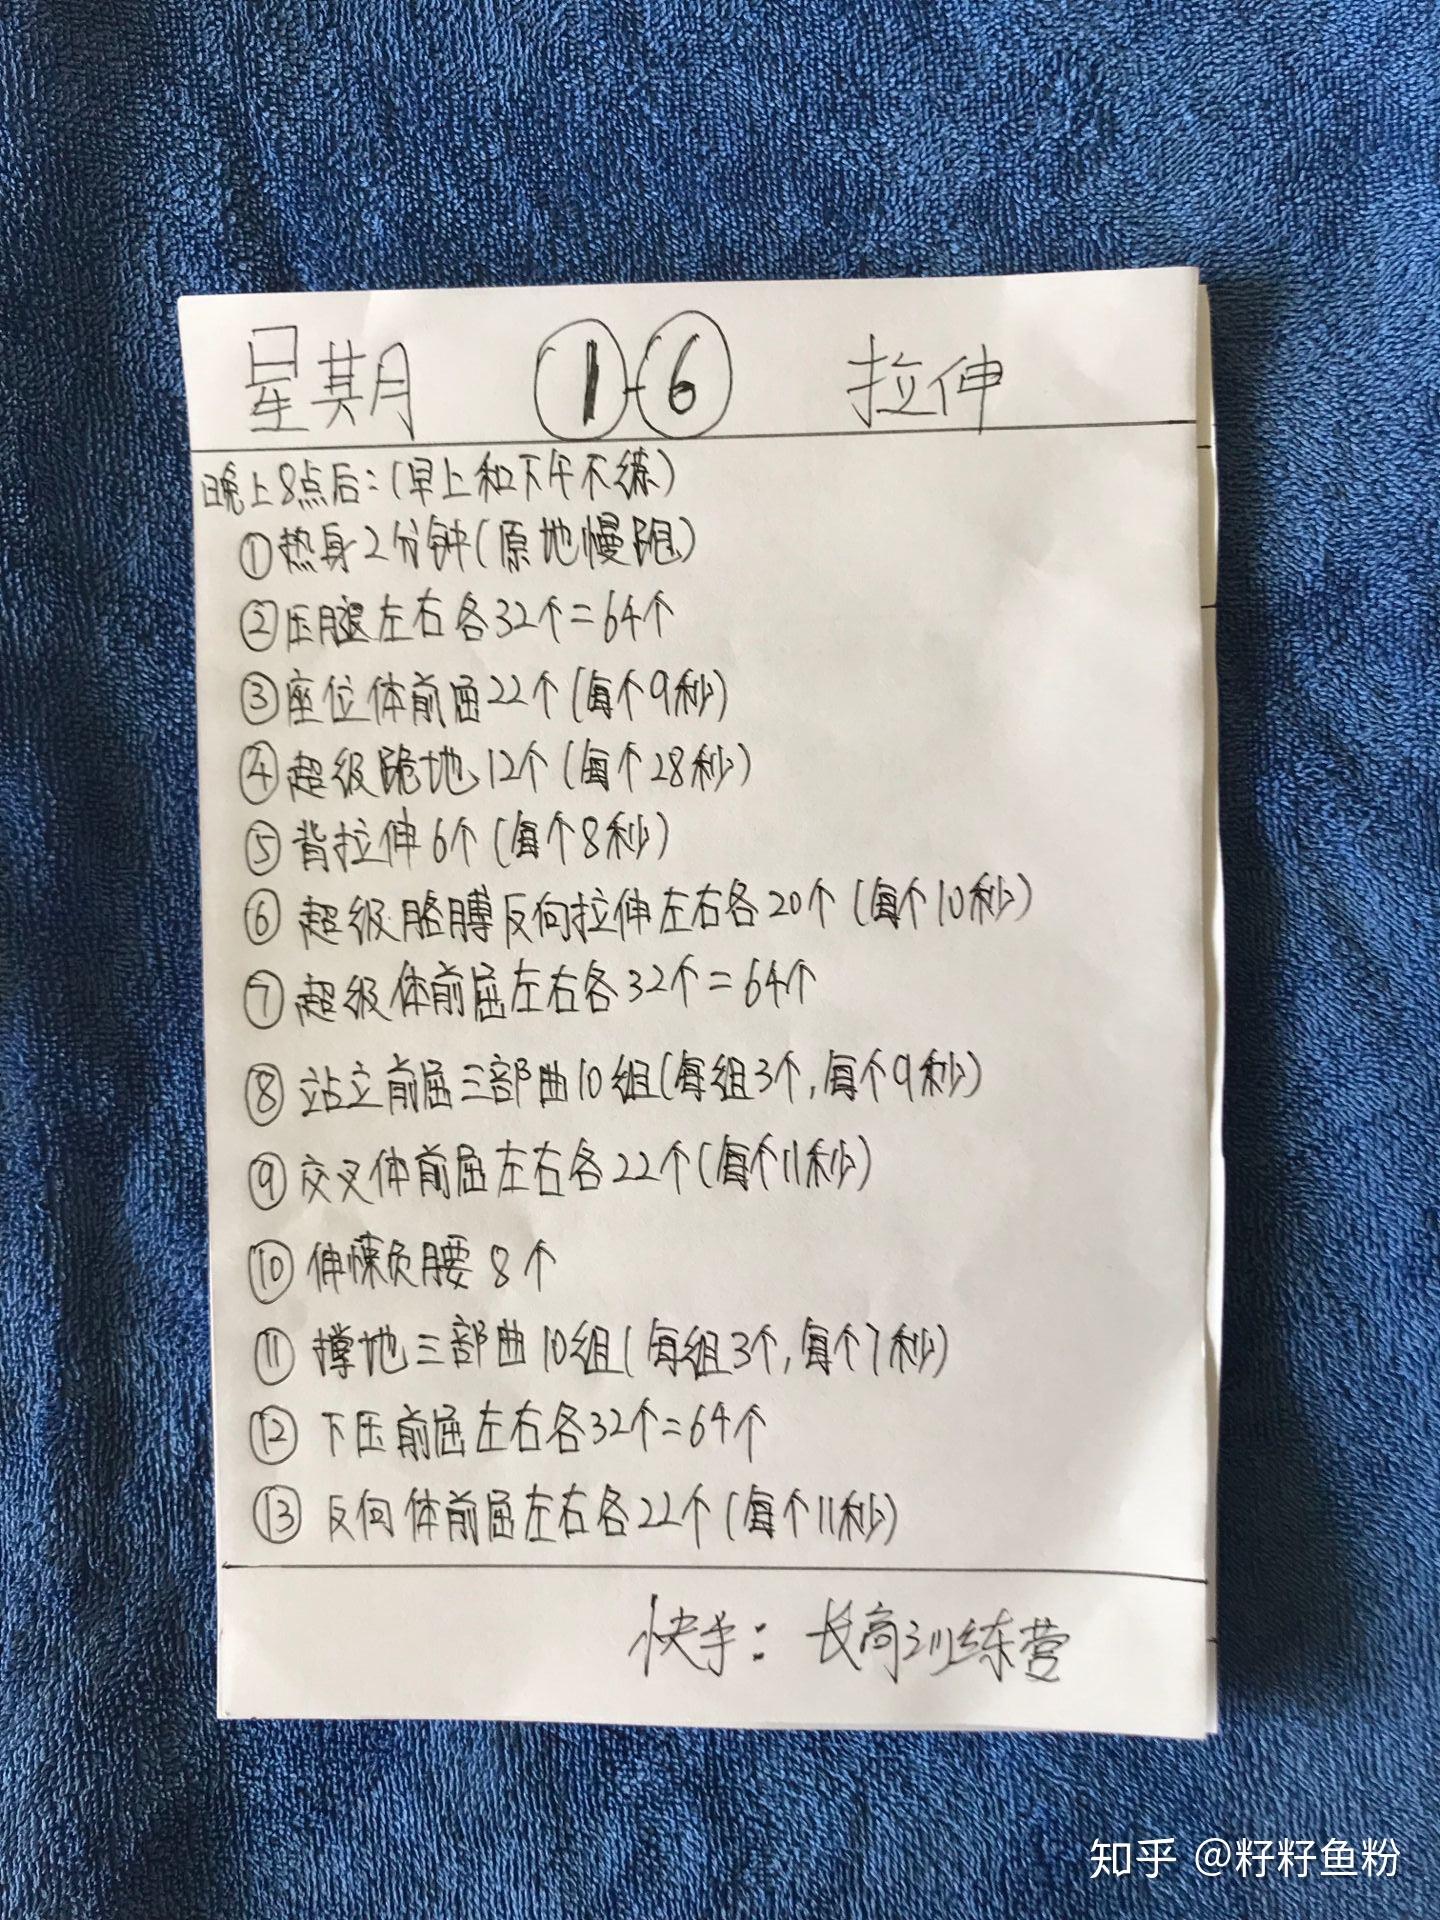 星期 ①-⑥ 拉伸
晚上8点后:(早上和下午不练)
①热身2分钟(原地慢跑)
②压腿左右各32个=64个
③座位体前屈22个(每个9秒)
④超级跪地12个(每个28秒)
⑤背拉伸6个(每个8秒)
⑥超级胳膊反向拉伸左右各20个(每个10秒)
⑦超级体前屈左右各32个=64个
⑧站立前屈三部曲10组(每组3个,每个9秒)
⑨交叉体前屈左右各22个(每个11秒)
⑩伸懒负腰8个
⑪撑地三部曲10组(每组3个,每个7秒)
⑫下压前屈左右各32个=64个
⑬反向体前屈左右各22个(每个11秒)
快手:长高训练营
知乎 @籽籽鱼粉